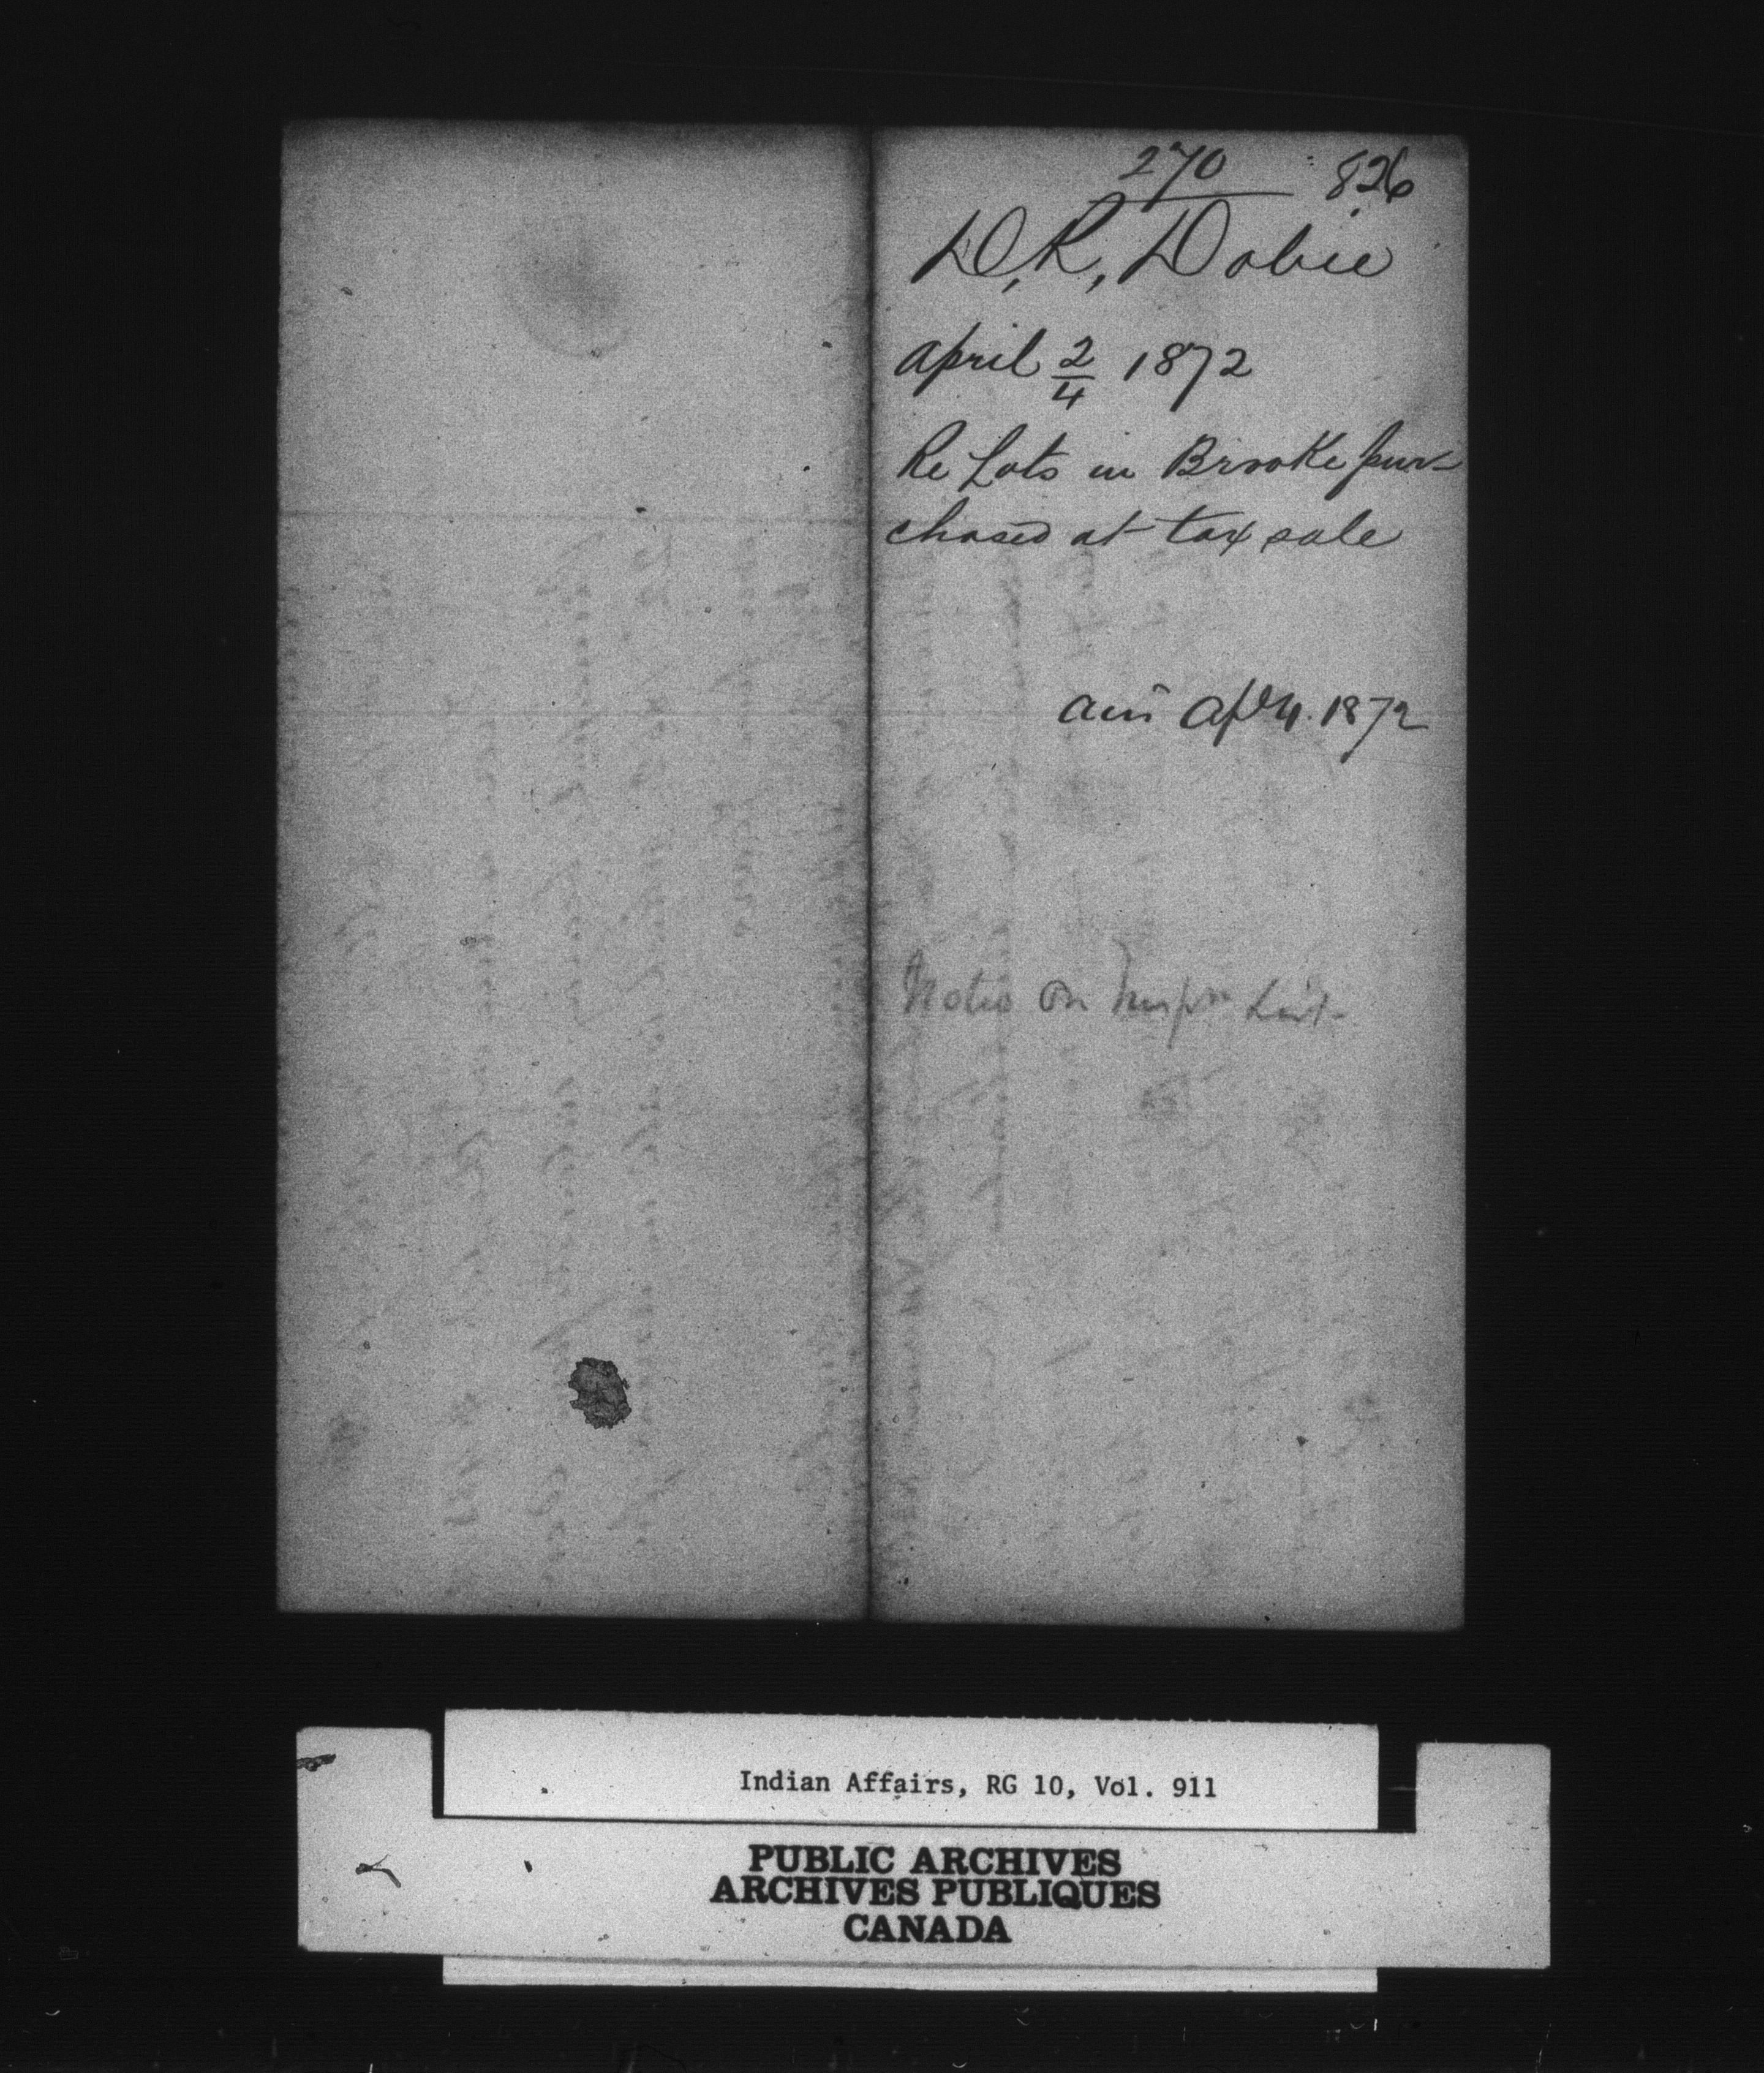 270 826
D, R, Dobie
April 2/4 1872
Re Lots in Brooke pur-
chased at tax sale
Apl 4. 1872
Noted on Inspn List-
Indian Affairs, RG 10, Vol. 911
PUBLIC ARCHIVES
ARCHIVES PUBLIQUES
CANADA